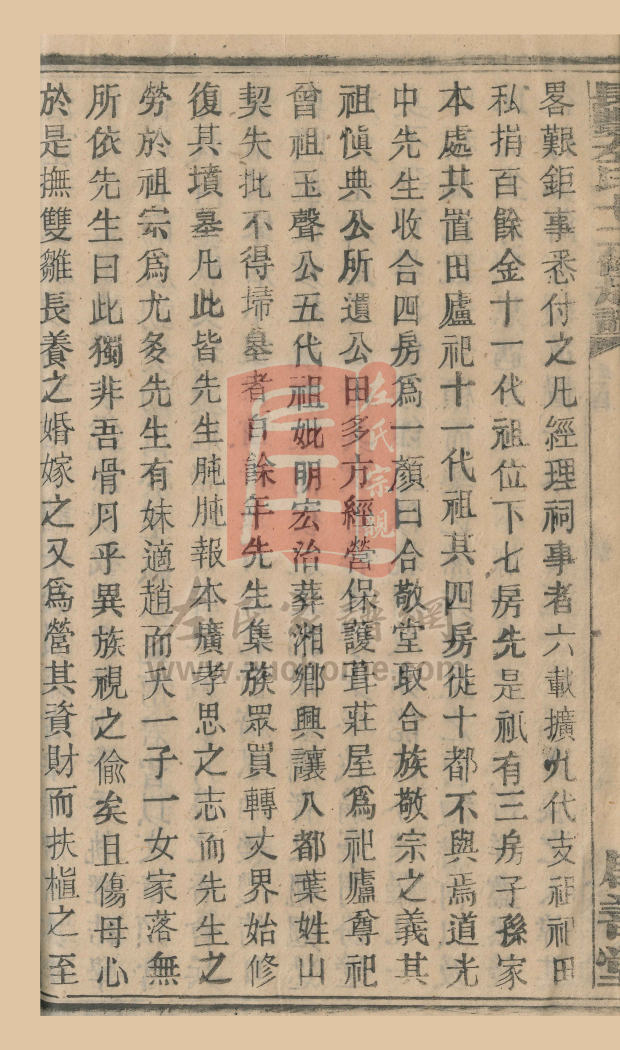 畧艱鉅事悉付之凡經理祠事者六載擴九代支祖祀田
私捐百餘金十一代祖位下七房先是祇有三房子孫家
本處共置田廬祀十一代祖其四房徙十都不與焉道光
中先生收合四房爲一顏曰合敬堂取合族敬宗之義其
祖傎典公所遺公田多方經營保護葺莊屋爲祀廬尊祀
曾祖玉聲公五代祖妣明宏治葬湘鄉興讓八都葉姓山
契失批不得埽墓者百餘年先生集族眾買轉丈界始修
復其墳墓凡此皆先生肫肫報本擴孝思之志而先生之
勞於祖宗爲尤多先生有妹適趙而夭一子一女家落無
所依先生曰此獨非吾骨月乎異族視之偷矣且傷母心
於是撫雙雛長養之婚嫁之又爲營其資財而扶植之至
左氏宗親
左氏家譜網